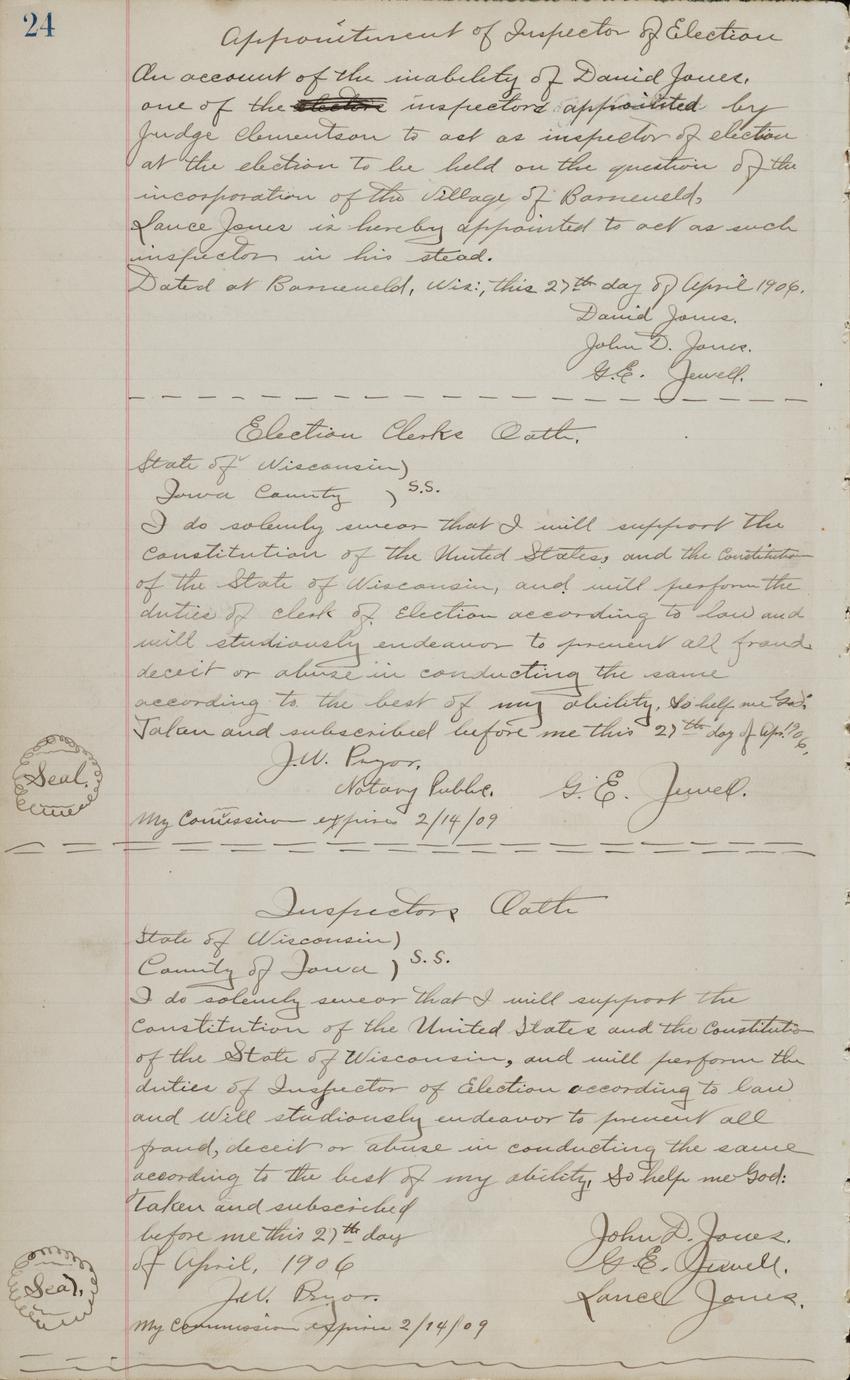 24
Appointment of Inspector of Election
On account of the inability of David Jones,
one of the electors inspectors appointed by
Judge Clementson to act as inspector of election
at the election to be held on the question of the
incorporation of the Village of Barneveld,
Lance Jones is hereby appointed to act as such
inspector in his stead.
Dated at Barneveld, Wis:, this 27th day of April 1906.
David Jones.
John D. Jones.
G.E. Jewell.
Election Clerks Oath.
State of Wisconsin)
Iowa County ) S.S.
I do solemly swear that I will support the
constitution of the United States, and the Constitution
of the State of Wisconsin, and will perform the
duties of clerk of Election according to law and
will studiously endeavor to prevent all fraud
deceit or abuse in conducting the same
according to the best of my ability. So help me God:
Taken and subscribed before me this 27th day of Apr. 1906.
Seal.
J.W. Pryor.
Notary Public. G.E. Jewell.
My Comission expires 2/14/09
Inspectors Oath
State of Wisconsin)
County of Iowa ) S.S.
I do solemly swear that I will support the
Constitution of the United States and the Constitution
of the State of Wisconsin, and will perform the
duties of Inspector of Election according to law
and will studiously endeavor to prevent all
fraud, deceit or abuse in conducting the same
according to the best of my ability, So help me God:
Taken and subscribed
before me this 27th day John D. Jones.
of April, 1906 G.E. Jewell.
Seal.
J.W. Pryor. Lance Jones.
My Commission expires 2/14/09